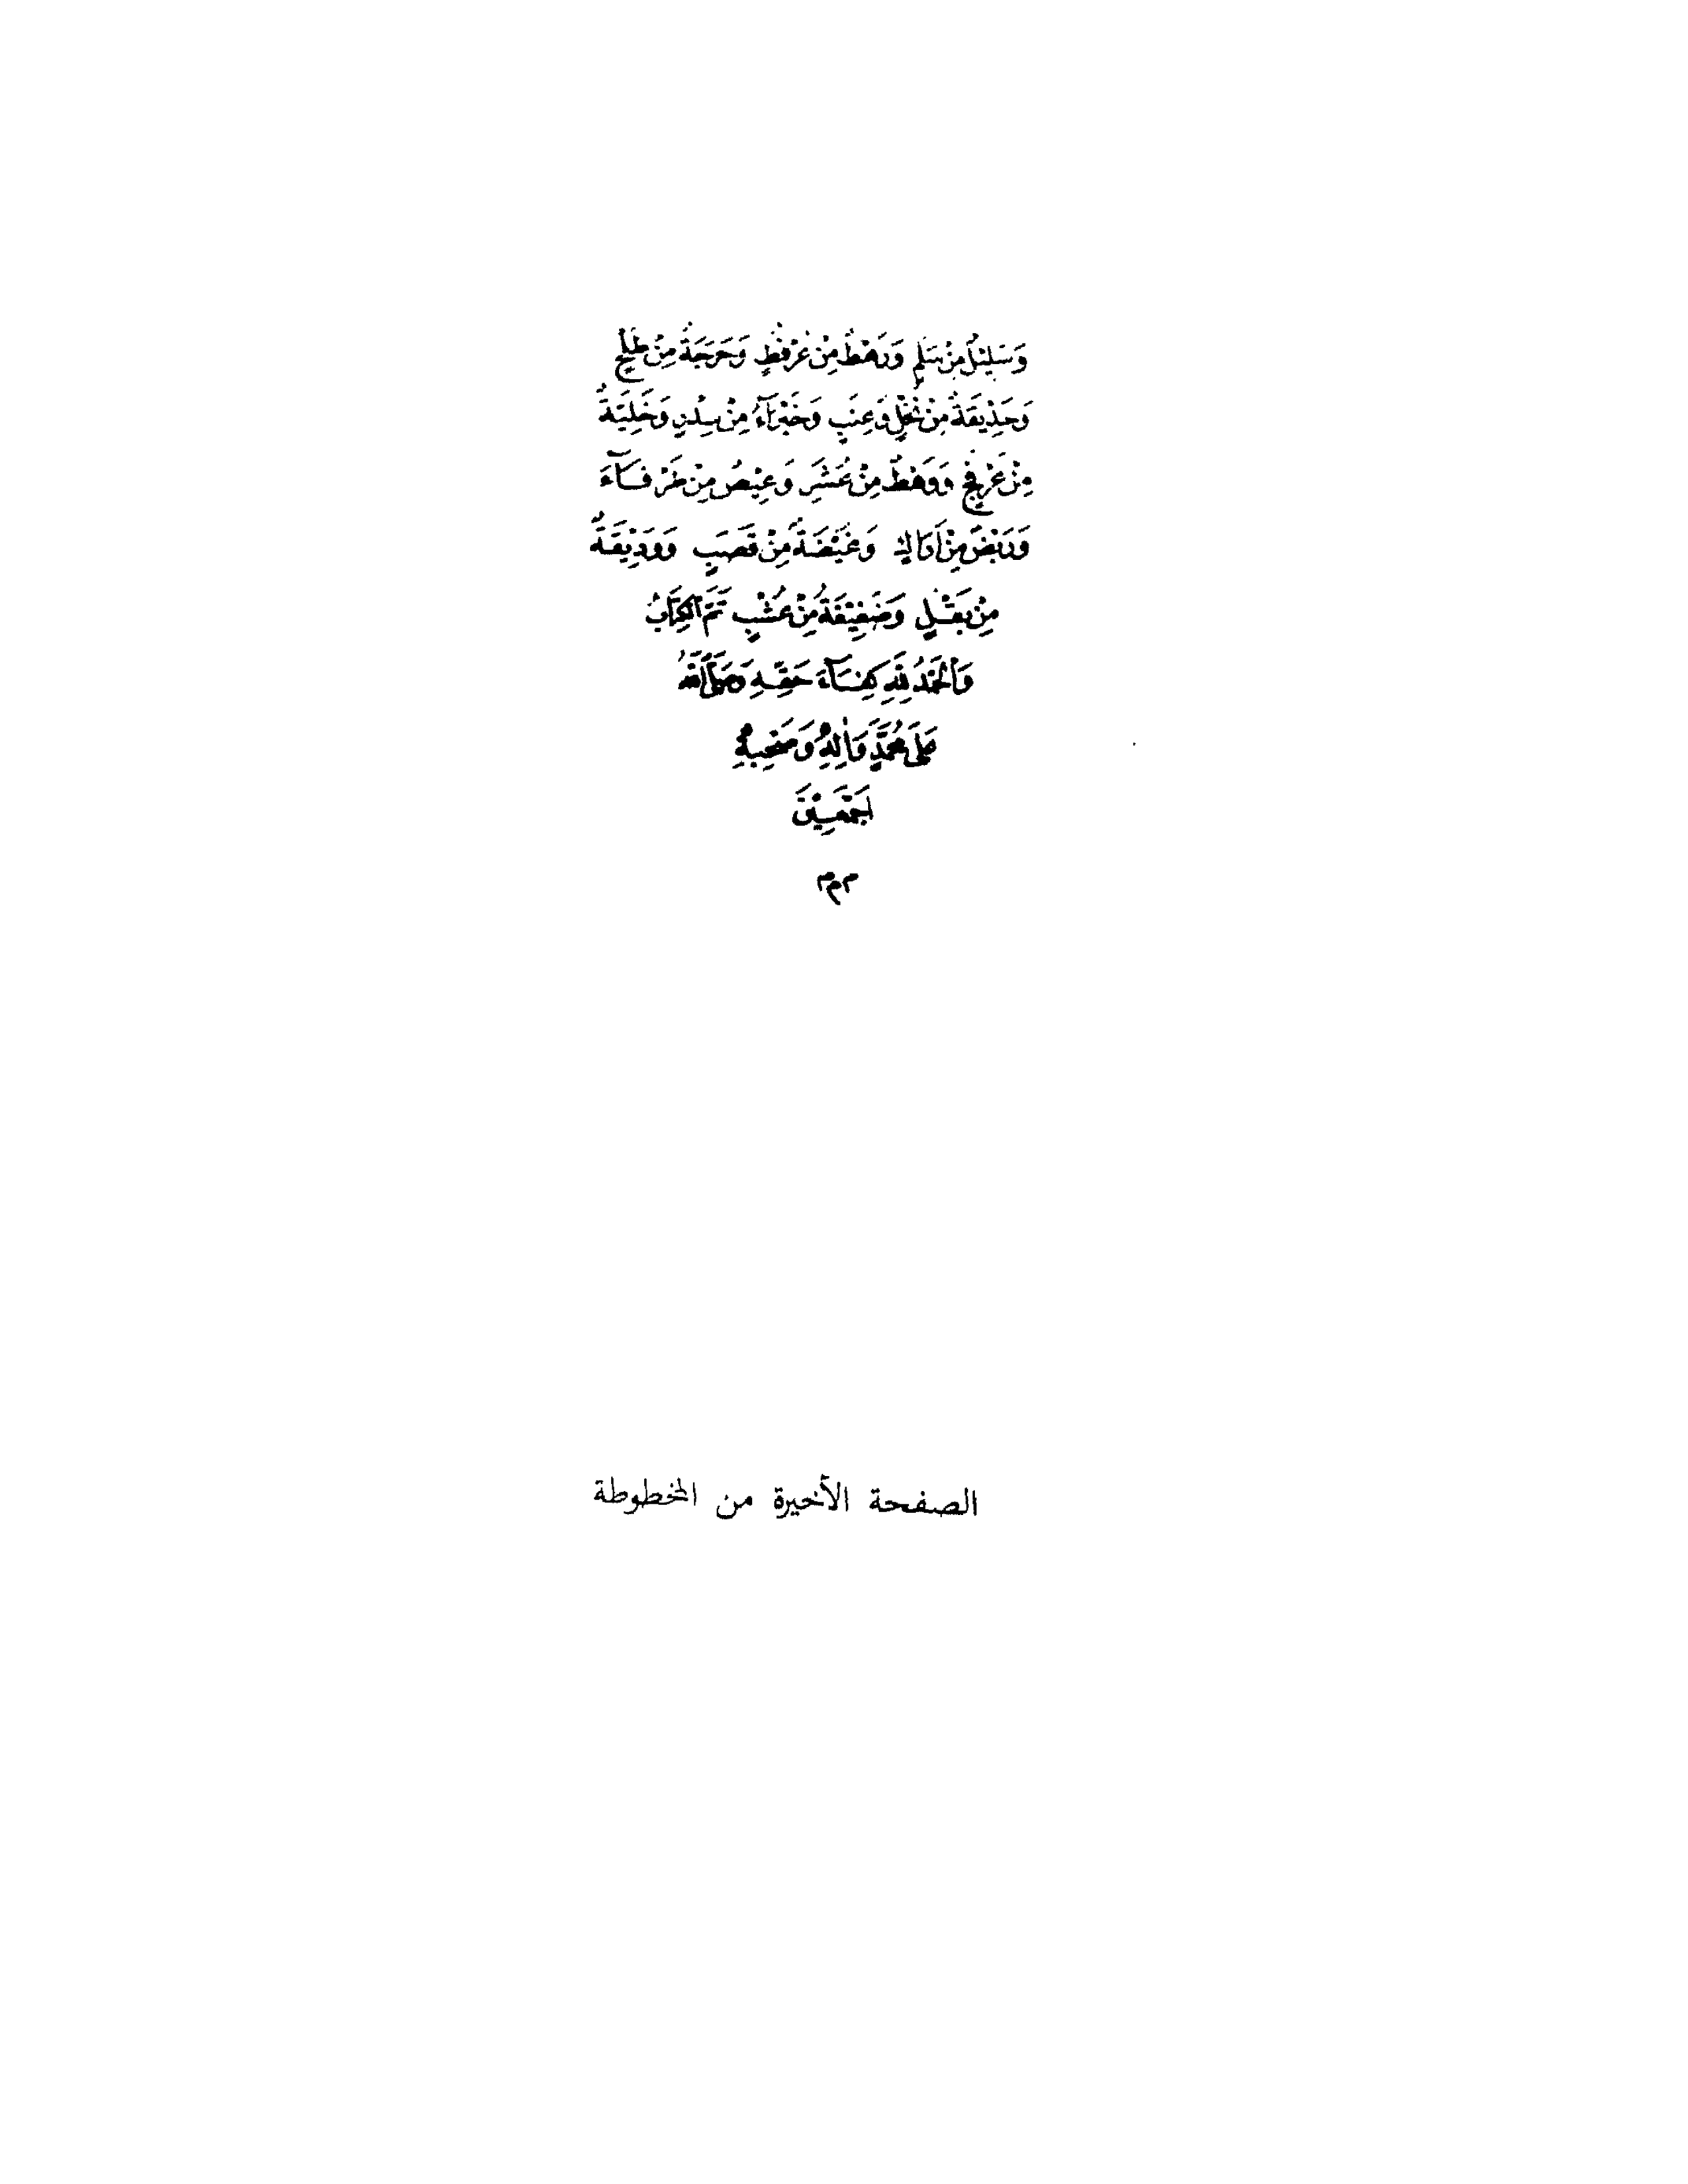 وَسَلِيلٌ مِنْ سَلَمٍ وَرَهْطٌ مِنْ عُرْفُطٍ وَحَرَجَةٌ مِنْ طَلْحٍ
وَحَدِيقَةٌ مِنْ نَخْلٍ وَعِنَبٍ وَخَبْرَآءُ مِنْ سِدْرٍ وَخَلِيَّةٌ
مِنْ عَرْفَجٍ وَوَهْطٌ مِنْ عُشَرٍ وَعِيْصٌ مِنْ طَرْفَآءَ
وَرَبْضٌ مِنْ أَرَاكٍ وَغَيْضَةٌ مِنْ قَصَبٍ وَوَدِيْقَةٌ
مِنْ بَقْلٍ وَضَفِيْفَةٌ مِنْ عُشْبٍ تَمَّ الْكِتَابُ
وَالْحَمْدُ لِلَّهِ كِفَآءَ حَقِّهِ وَصَلَّى اللَّهُ
عَلَى مُحَمَّدٍ وَاٰلِهِ وَصَحْبِهِ
اَجْمَعِيْنَ
م م م
الصفحة الأخيرة من المخطوطة